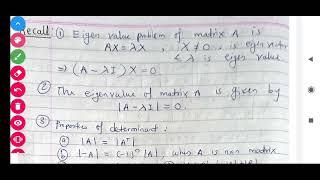 Recall: ① Eigen value problem of matrix A is
AX = λX , X ≠ 0, is eigen vector
& λ is eigen value
⇒ (A - λI) X = 0
② The eigenvalue of matrix A is given by
|A - λI| = 0.
③ Properties of determinant:
ⓐ |A| = |Aᵀ|
ⓑ |-A| = (-1)ⁿ |A|, when A is nxn matrix